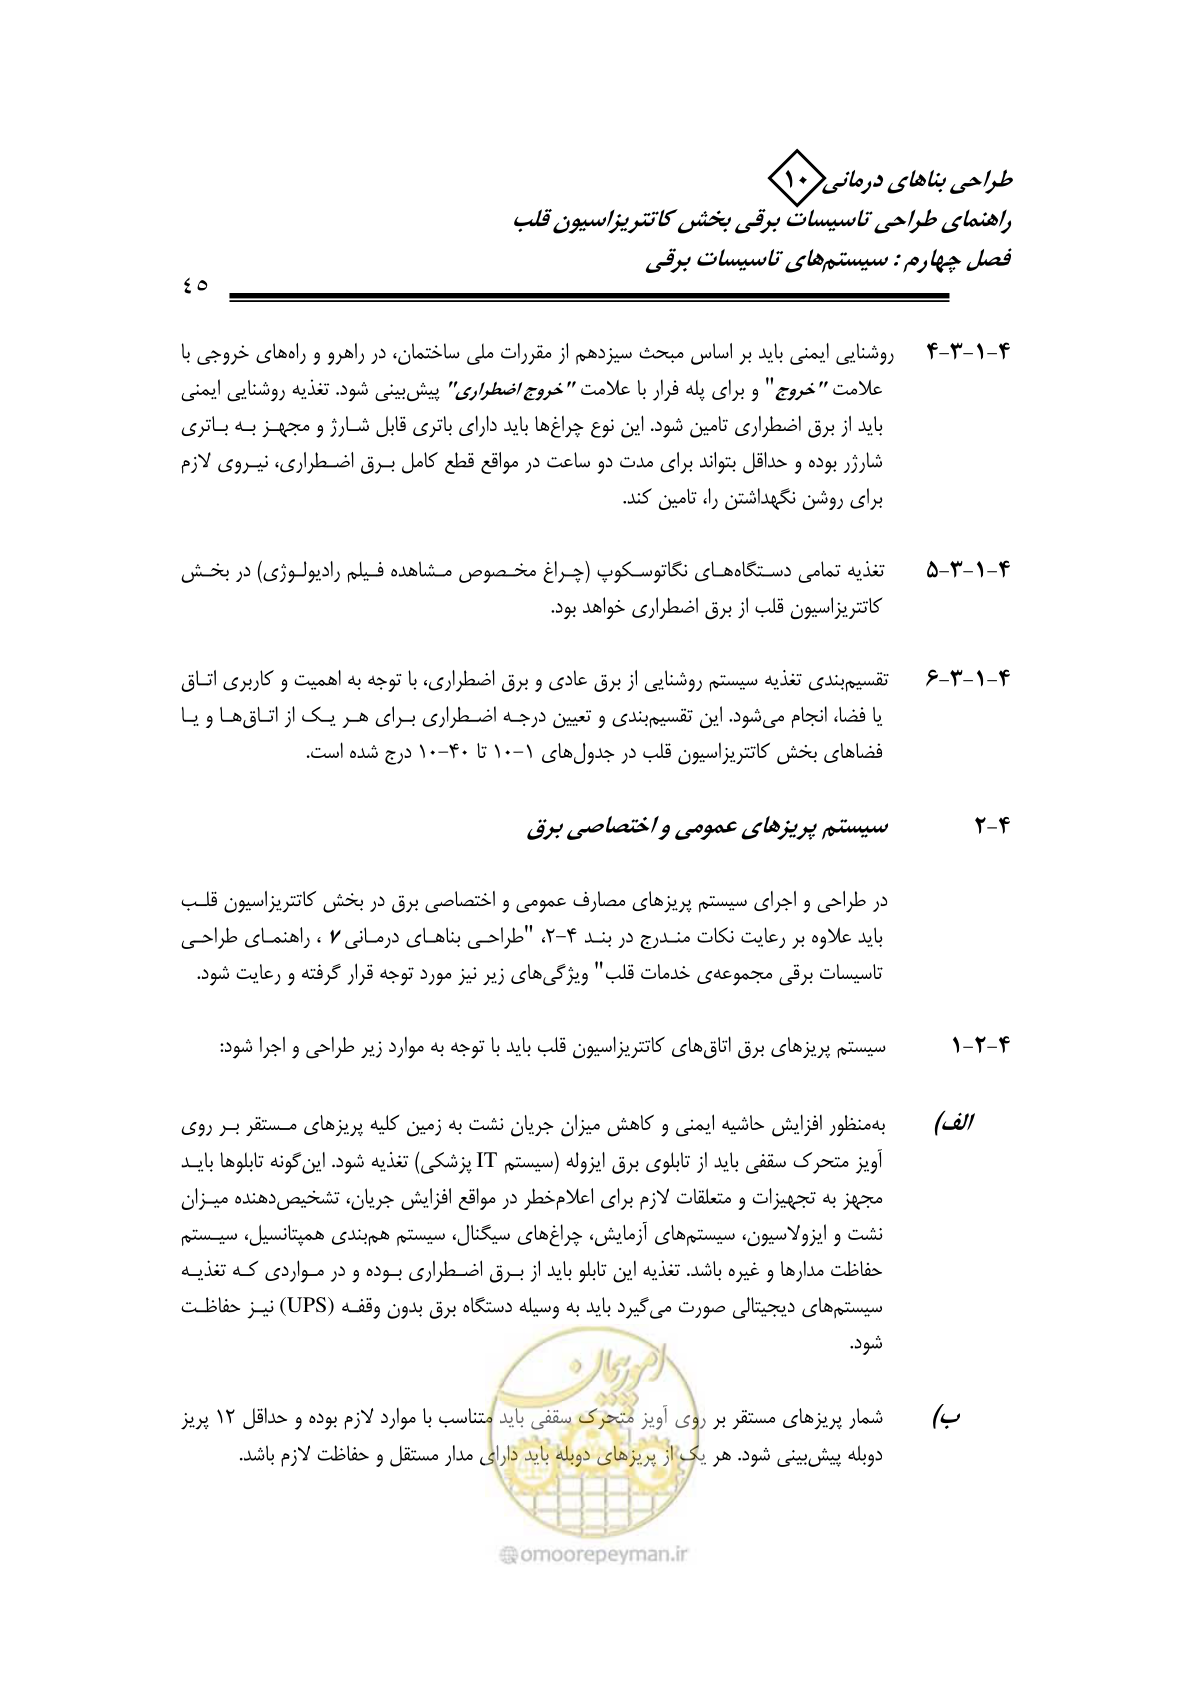 طراحی بناهای درمانی ۱۰
راهنمای طراحی تاسیسات برقی بخش کاتتریزاسیون قلب
فصل چهارم : سیستم‌های تاسیسات برقی
٤٥
۴-۱-۳-۴ روشنایی ایمنی باید بر اساس مبحث سیزدهم از مقررات ملی ساختمان، در راهرو و راه‌های خروجی با
علامت "خروج" و برای پله فرار با علامت "خروج اضطراری" پیش‌بینی شود. تغذیه روشنایی ایمنی
باید از برق اضطراری تامین شود. این نوع چراغ‌ها باید دارای باتری قابل شـارژ و مجهـز بـه بـاتری
شارژر بوده و حداقل بتواند برای مدت دو ساعت در مواقع قطع کامل بـرق اضـطراری، نیـروی لازم
برای روشن نگهداشتن را، تامین کند.
۴-۱-۳-۵ تغذیه تمامی دسـتگاه‌هـای نگاتوسـکوپ (چـراغ مخـصوص مـشاهده فـیلم رادیولـوژی) در بخـش
کاتتریزاسیون قلب از برق اضطراری خواهد بود.
۴-۱-۳-۶ تقسیم‌بندی تغذیه سیستم روشنایی از برق عادی و برق اضطراری، با توجه به اهمیت و کاربری اتـاق
یا فضا، انجام می‌شود. این تقسیم‌بندی و تعیین درجـه اضـطراری بـرای هـر یـک از اتـاق‌هـا و یـا
فضاهای بخش کاتتریزاسیون قلب در جدول‌های ۱-۱۰ تا ۴۰-۱۰ درج شده است.
۴-۲ سیستم پریزهای عمومی و اختصاصی برق
در طراحی و اجرای سیستم پریزهای مصارف عمومی و اختصاصی برق در بخش کاتتریزاسیون قلـب
باید علاوه بر رعایت نکات منـدرج در بنـد ۴-۲، "طراحـی بناهـای درمـانی ۷ ، راهنمـای طراحـی
تاسیسات برقی مجموعه‌ی خدمات قلب" ویژگی‌های زیر نیز مورد توجه قرار گرفته و رعایت شود.
۴-۲-۱ سیستم پریزهای برق اتاق‌های کاتتریزاسیون قلب باید با توجه به موارد زیر طراحی و اجرا شود:
الف) به‌منظور افزایش حاشیه ایمنی و کاهش میزان جریان نشت به زمین کلیه پریزهای مـستقر بـر روی
آویز متحرک سقفی باید از تابلوی برق ایزوله (سیستم IT پزشکی) تغذیه شود. این‌گونه تابلوها بایـد
مجهز به تجهیزات و متعلقات لازم برای اعلام‌خطر در مواقع افزایش جریان، تشخیص‌دهنده میـزان
نشت و ایزولاسیون، سیستم‌های آزمایش، چراغ‌های سیگنال، سیستم هم‌بندی همپتانسیل، سیـستم
حفاظت مدارها و غیره باشد. تغذیه این تابلو باید از بـرق اضـطراری بـوده و در مـواردی کـه تغذیـه
سیستم‌های دیجیتالی صورت می‌گیرد باید به وسیله دستگاه برق بدون وقفـه (UPS) نیـز حفاظـت
شود.
ب) شمار پریزهای مستقر بر روی آویز متحرک سقفی باید متناسب با موارد لازم بوده و حداقل ۱۲ پریز
دوبله پیش‌بینی شود. هر یک از پریزهای دوبله باید دارای مدار مستقل و حفاظت لازم باشد.
امور پیمان
@omoorepeyman.ir